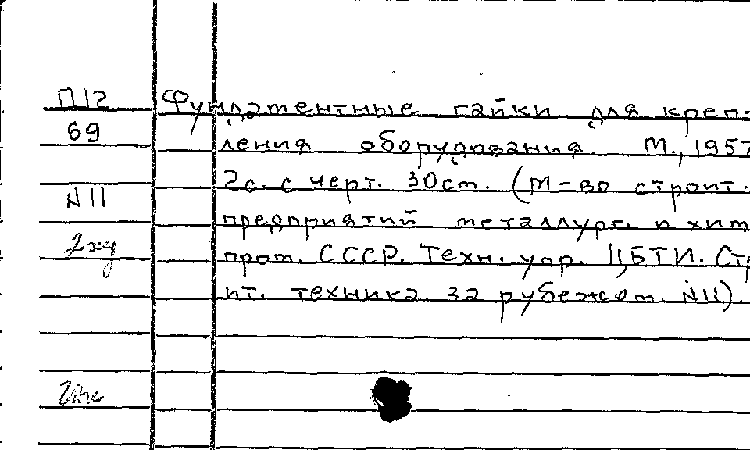 П12 Фундаментные гайки для креп-
69 ления оборудования. М., 1957
2с. с черт. 30см. (М-во строит.
N11 предприятий металлург. и хим.
2экз пром. СССР. Техн. упр. ЦБТИ. Стр
ит. техника за рубежом. N11).